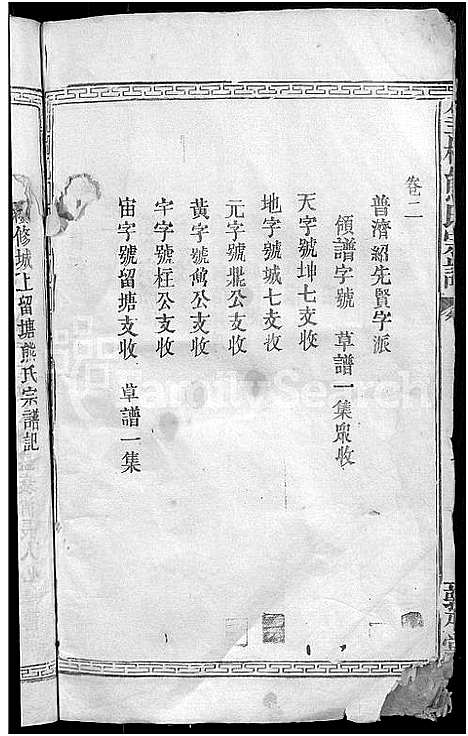 卷二
普濟紹先賢字派
領譜字號　草譜一集眾收
天字號坤七支收
地字號城七支收
元字號鼎公支收
黃字號萬公支收
宇字號枉公支收
宙字號留塘支收　草譜一集
修城上留塘熊氏宗譜記
FamilySearch